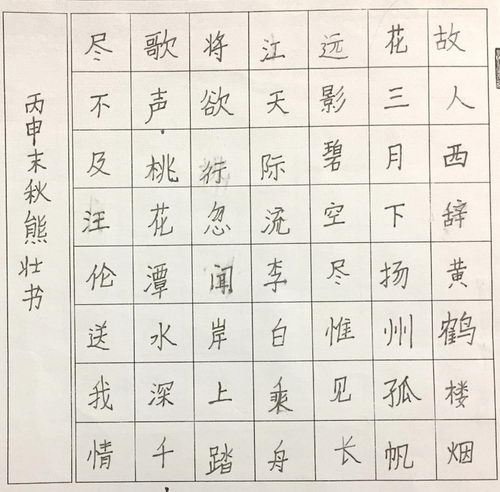 故人西辞黄鹤楼烟
花三月下扬州孤帆
远影碧空尽惟见长
江天际流李白乘舟
将欲行忽闻岸上踏
歌声桃花潭水深千
尽不及汪伦送我情
丙申末秋熊壮书